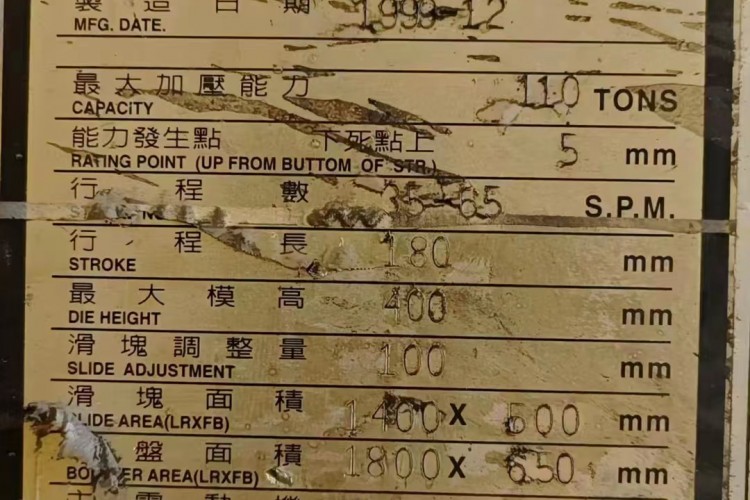 製造日期 1999-12
MFG. DATE.
最大加壓能力 110 TONS
CAPACITY
能力發生點 下死點上 5 mm
RATING POINT (UP FROM BUTTOM OF STR.)
行程數 35-65 S.P.M.
行程長 180 mm
STROKE
最大模高 400 mm
DIE HEIGHT
滑塊調整量 100 mm
SLIDE ADJUSTMENT
滑塊面積 1400 X 500 mm
SLIDE AREA(LRXFB)
盤面積 1800 X 650 mm
AREA(LRXFB)